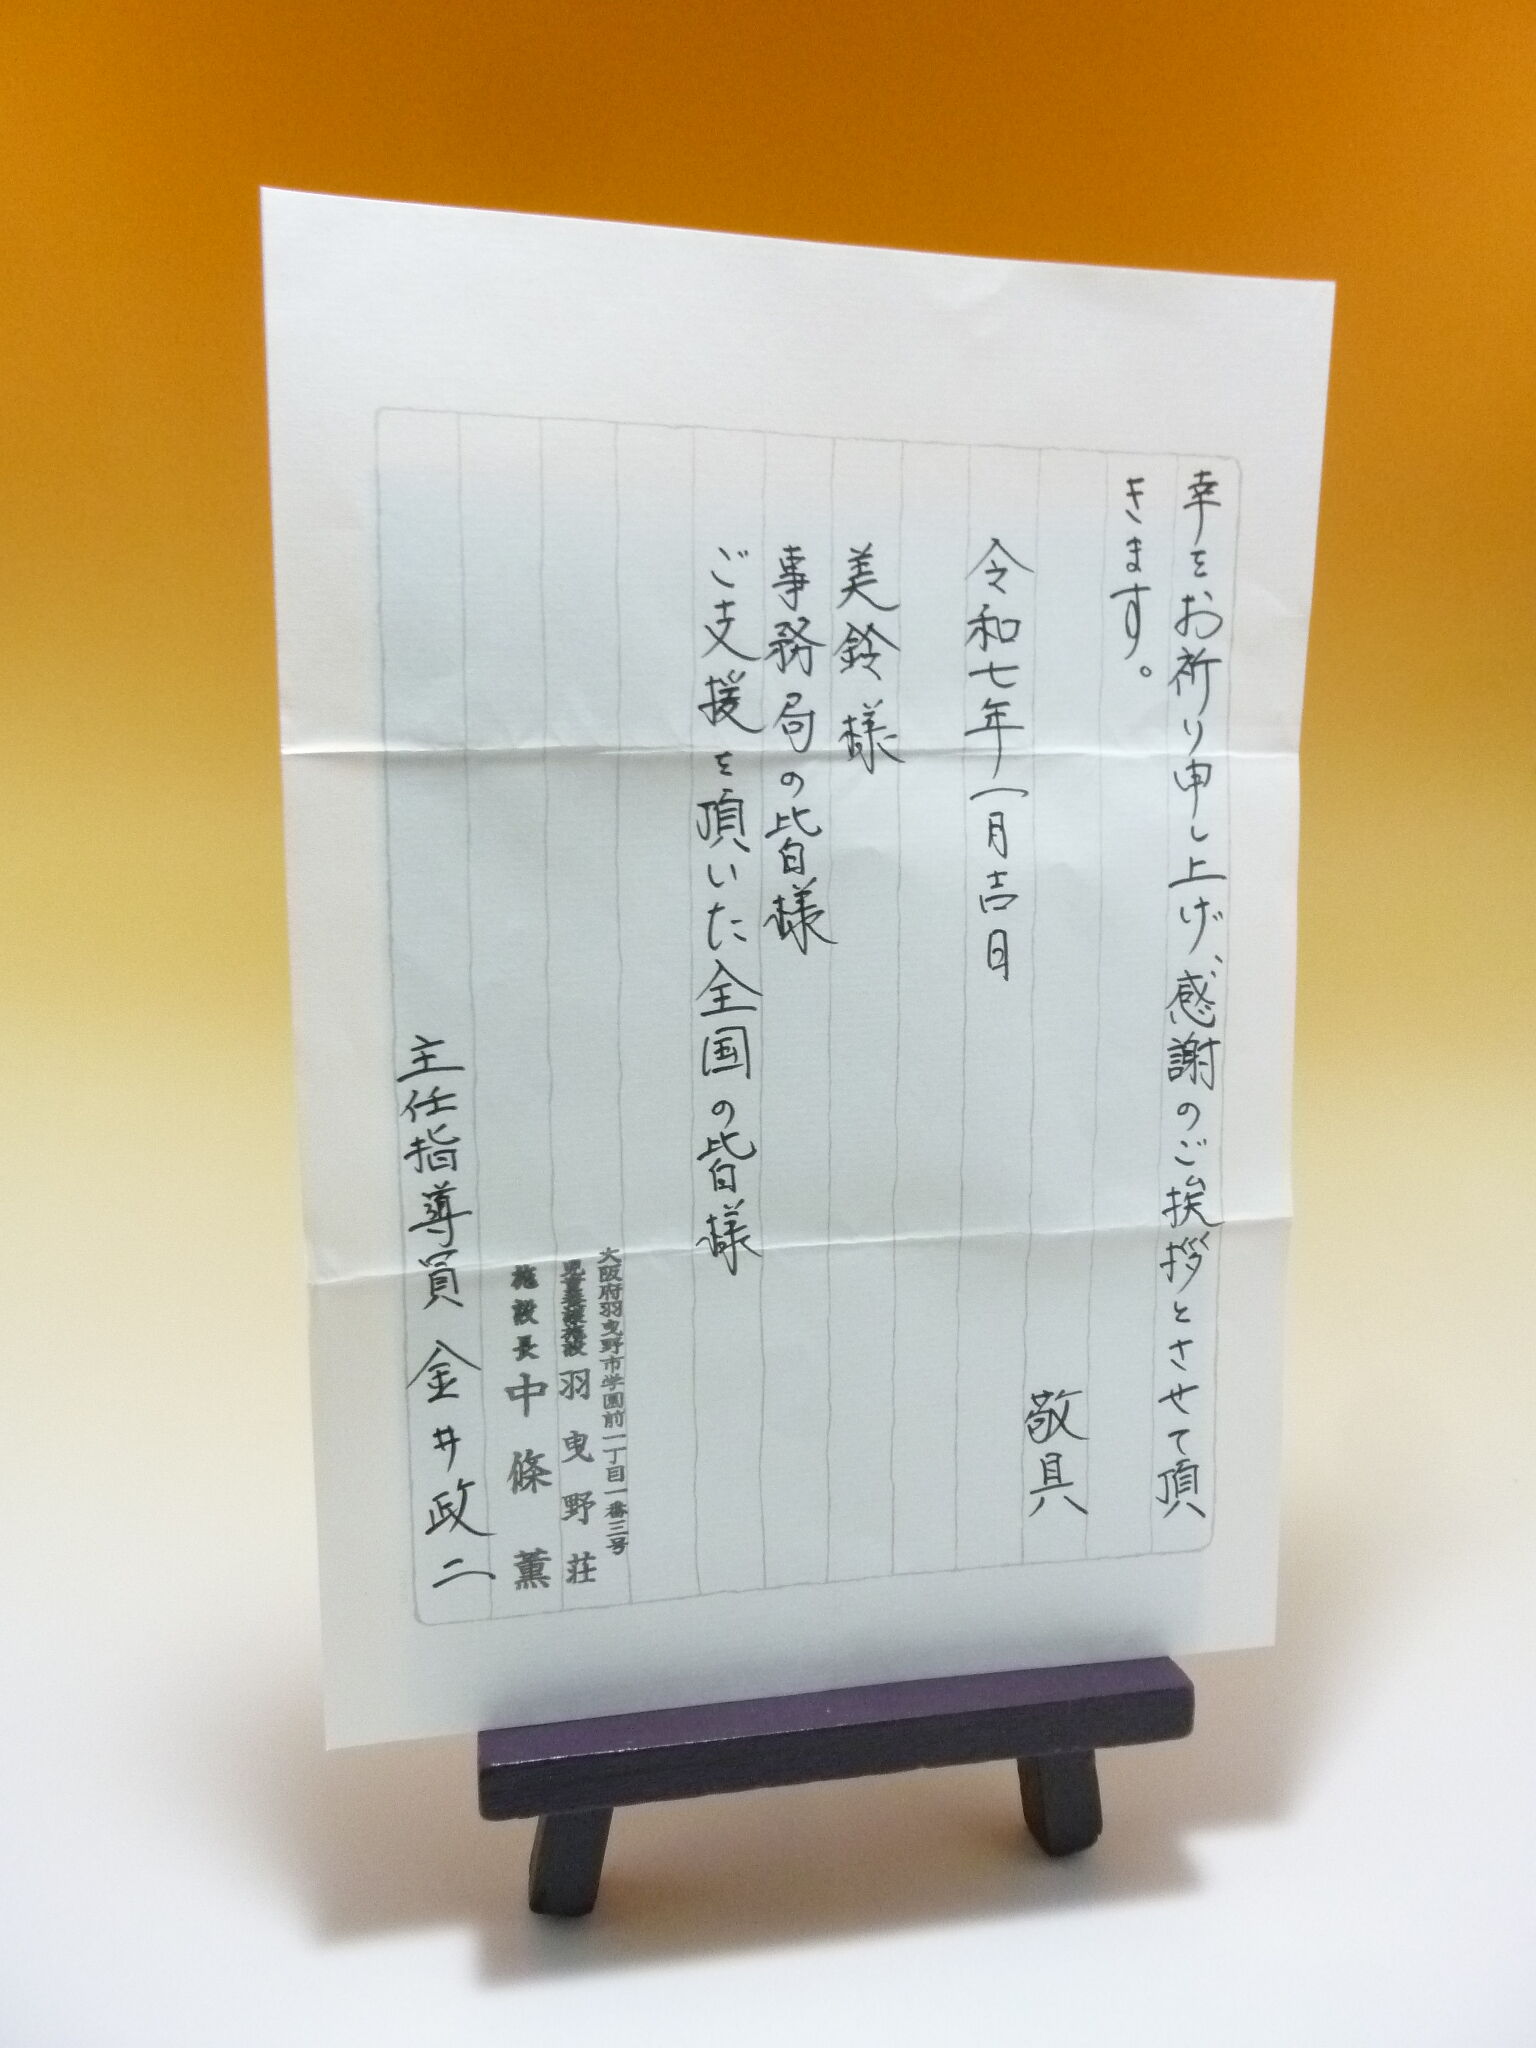 幸をお祈り申し上げ、感謝のご挨拶とさせて頂
きます。
敬具
令和七年一月吉日
美鈴様
事務局の皆様
ご支援を頂いた全国の皆様
大阪府羽曳野市学園前一丁目一番三号
児童養護施設 羽曳野荘
施設長 中條薫
主任指導員 金井政二